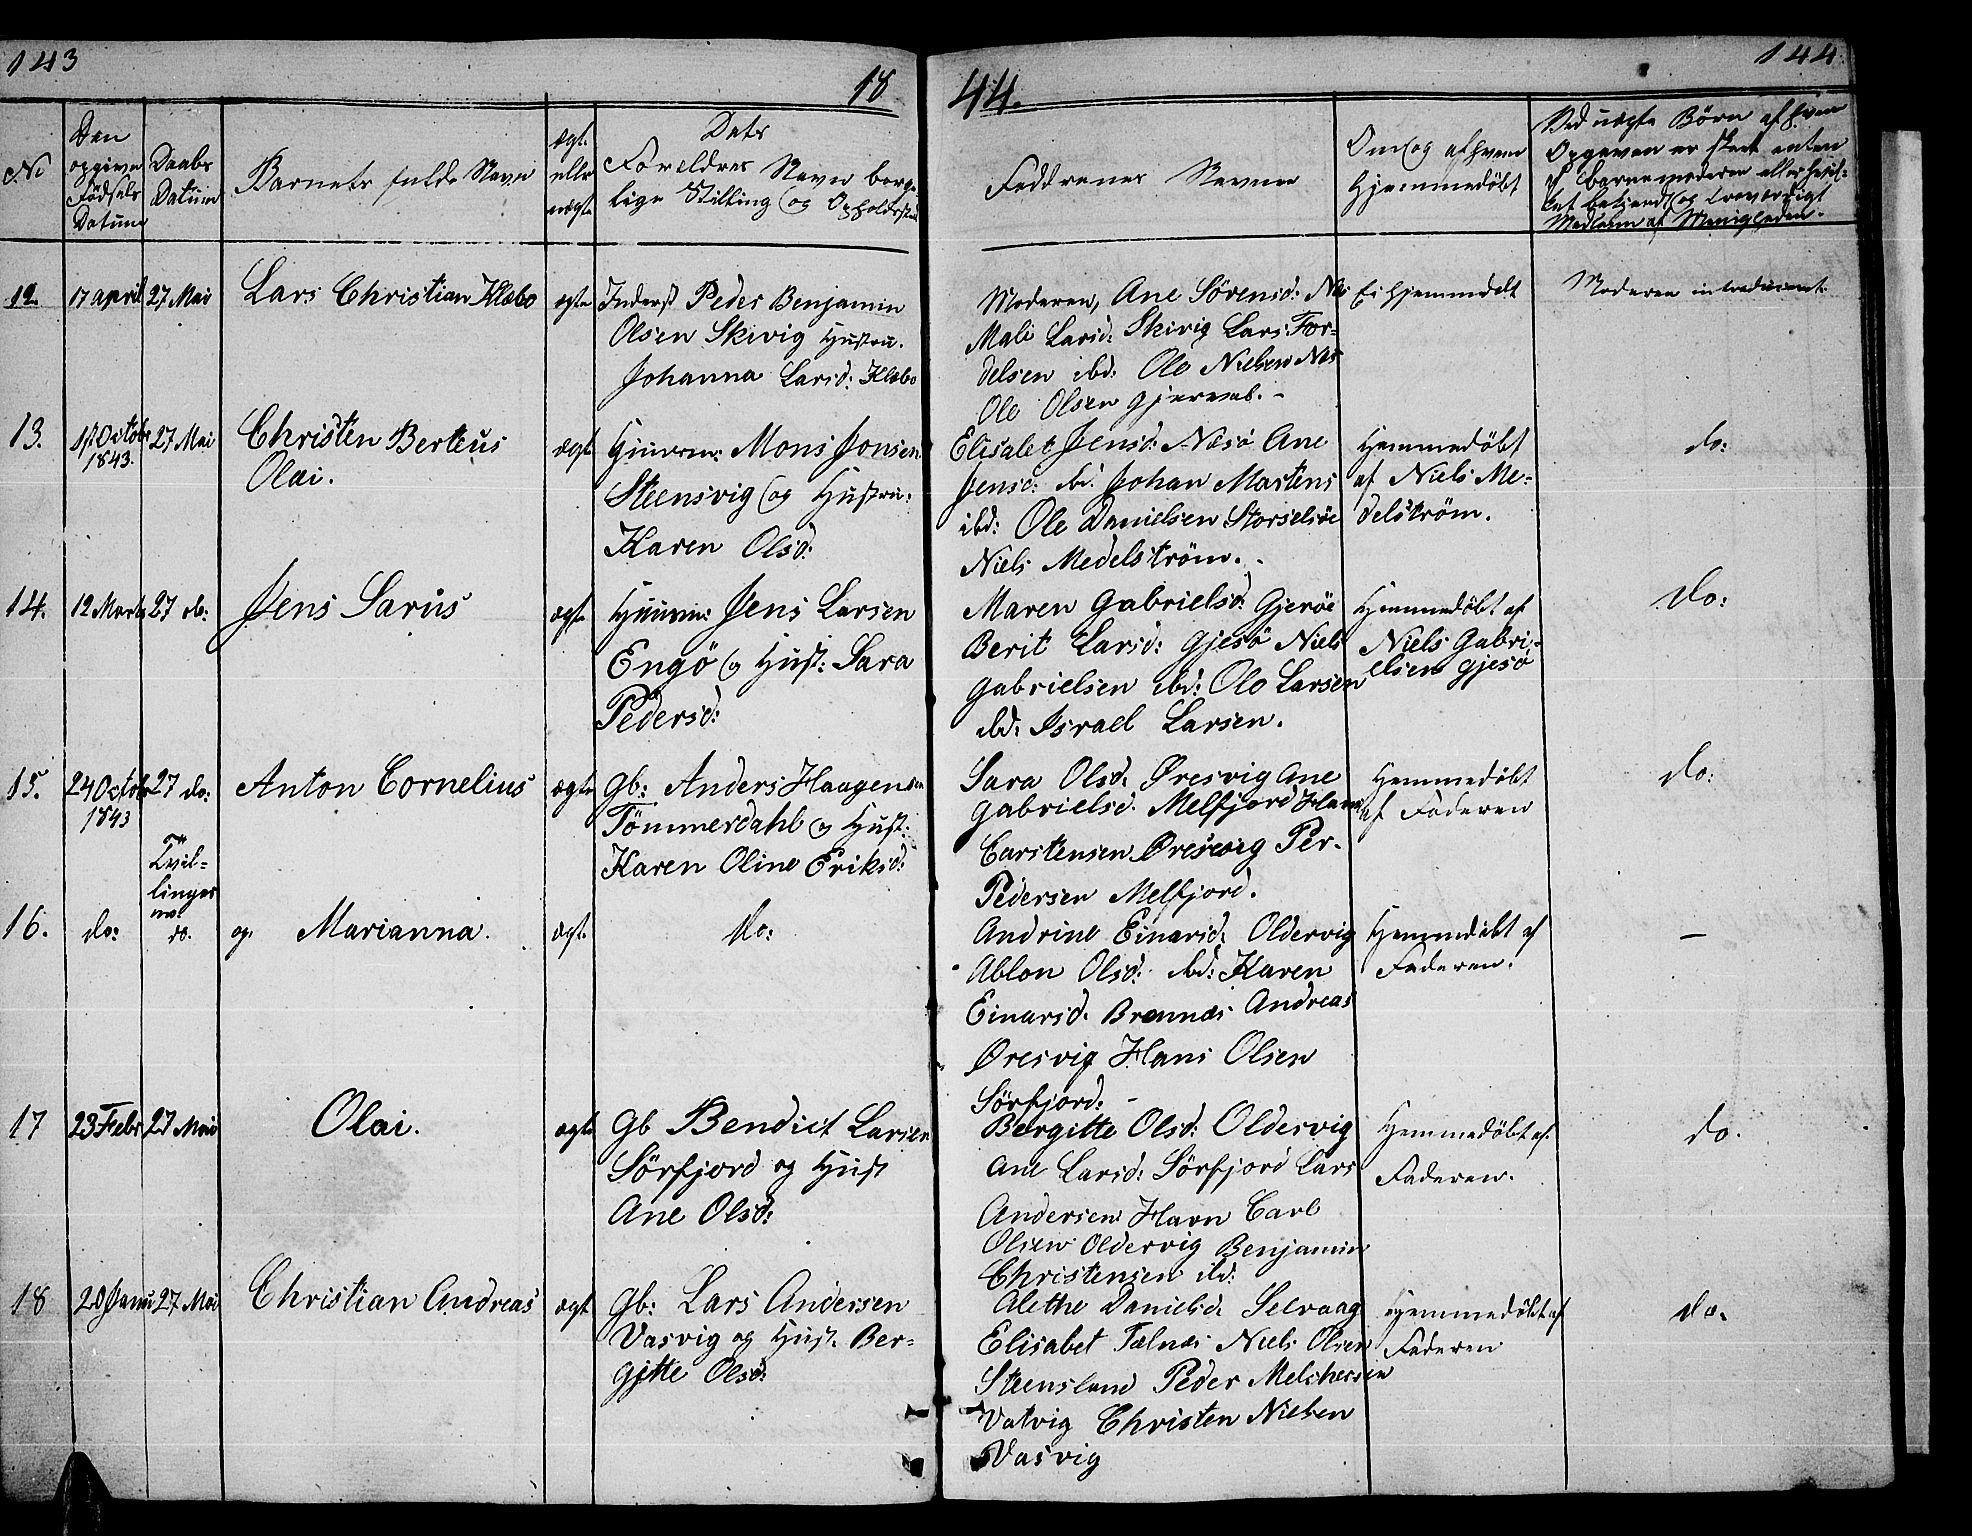 143
18
44.
144
No
Den opgivne Fødsels Datum
Daabs Datum
Barnets fulde Navn
ægte eller uægte
Dets Foreldres Navn borgerlige Stilling og Opholdssted
Faddrenes Navne
Om og af hvem Hjemmedøbt
Ved uægte Børn af hvem
Opgaven er skeet enten
af Barnemoderen eller
bekiendt og troværdigt
Medlem af Menigheden.
12. 17 april 27 Mai Lars Christian Klæbo ægte Inderst Peder Benjamin
Olsen Skivig Hustru.
Johanna Larsd: Klæbo
Moderen, Ane Sørensd: Næs
Mali Larsd: Skivig Lars Tor-
delsen ibd: Ole Nielsen Næs
Ole Olsen
Ei hjemmedøbt
Moderen introduceret.
13. 1843. 27 Mai Christen Berteus
Olai.
ægte Huusm: Mons Jonsen
Steensvig og Hustru:
Karen Olsd:
Elisabet Jensd: Næsø Ane
Jensd: ibd. Johan Martens
ibd: Ole Danielsen Storselsøe
Niels Medelstrøm.
Hjemmedøbt
af Niels Me-
delstrøm.
do:
14. 12 Marts 27 do: Jens Sarus ægte Huusm: Jens Larsen
Engö og Hust: Sara
Pedersd:
Maren Gabrielsd: Gjerøe
Berit Larsd: Gjesø Niels
Gabrielsen ibd: Ole Larsen
ibd: Israel Larsen.
Hjemmedøbt af
Niels Gabri-
elsen Gjesø
Do:
15. 24 Octob 27 do: Anton Cornelius ægte Gb: Anders Haagensen
1843
Tömmerdahl og Hust:
Karen Oline Eriksd:
Tvil-
linger
Sara Olsd: Øresvig Ane
Gabrielsd. Melfjord Hans
Carstensen Øresvig Per-
Pedersen Melfjord.
Hjemmedøbt
af Faderen
do:
16. do: do. og Marianna. ægte do:
Andrine Einarsd: Oldervig
Ablon Olsd: ibd: Karen
Einarsd. Brennæs Andreas
Øresvig Hans Olsen
Sörfjord:
Hjemmedøbt af
Faderen.
—
17 23 Febr 27 Mai Olai. ægte Gb Bendict Larsen
Sörfjord og Hust
Ane Olsd:
Bergitte Olsd: Oldervig
Ane Larsd: Sörfjord Lars
Andersen Havn Carl
Olsen Oldervig Benjamin
Christensen ibd:
Hjemmedøbt af
Faderen.
do.
18 20 Janu 27 Mai Christian Andreas ægte Gb: Lars Andersen
Vasvig og Hust. Ber-
gitte Olsd:
Alethe Danielsd. Selvaag
Elisabet Tælnæs Niels Olsen
Steensland Peder Melchersen
Vatvig Christen Nielsen
Vasvig
Hjemmedøbt af
Faderen
do.